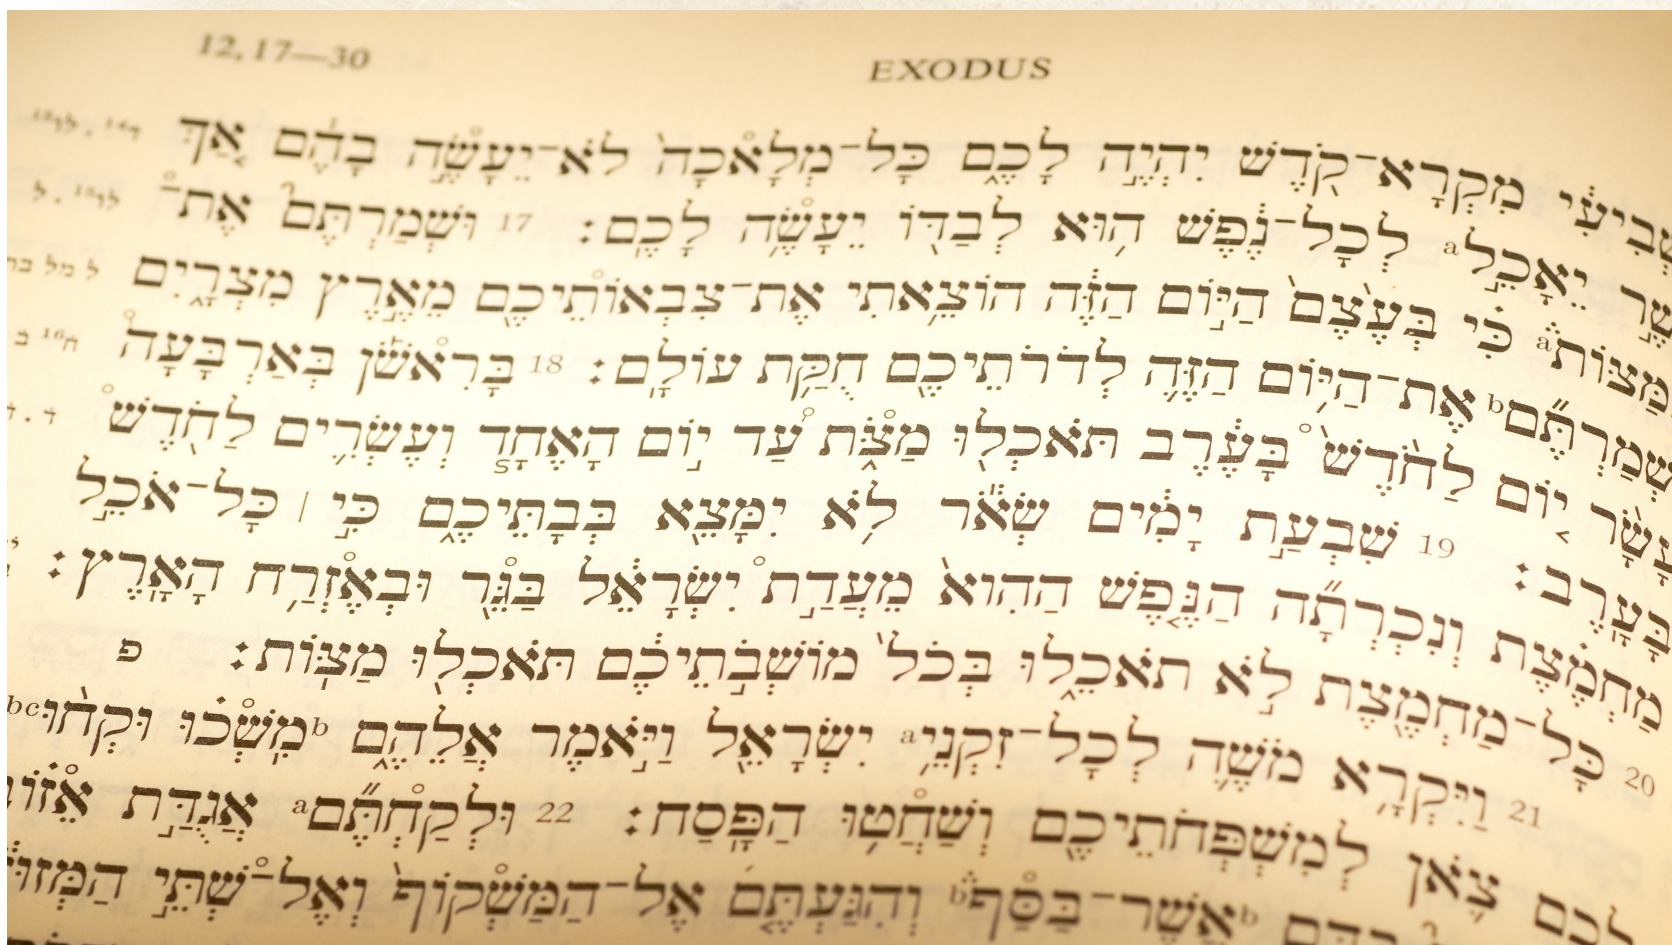 12,17—30 EXODUS
מִקְרָא־קֹדֶשׁ יִהְיֶה לָכֶם כָּל־מְלָאכָה לֹא־יֵעָשֶׂה בָהֶם אַךְ
יֵאָכֵל a לְכָל־נֶפֶשׁ הוּא לְבַדּוֹ יֵעָשֶׂה לָכֶם׃ 17 וּשְׁמַרְתֶּם אֶת־
מַצּוֹת a כִּי בְּעֶצֶם הַיּוֹם הַזֶּה הוֹצֵאתִי אֶת־צִבְאוֹתֵיכֶם מֵאֶרֶץ מִצְרָיִם
b אֶת־הַיּוֹם הַזֶּה לְדֹרֹתֵיכֶם חֻקַּת עוֹלָם׃ 18 בָּרִאשֹׁן בְּאַרְבָּעָה
יוֹם לַחֹדֶשׁ בָּעֶרֶב תֹּאכְלוּ מַצֹּת עַד יוֹם הָאֶחָד וְעֶשְׂרִים לַחֹדֶשׁ
בָּעָרֶב׃ 19 שִׁבְעַת יָמִים שְׂאֹר לֹא יִמָּצֵא בְּבָתֵּיכֶם כִּי ׀ כָּל־אֹכֵל
מַחְמֶצֶת וְנִכְרְתָה הַנֶּפֶשׁ הַהִוא מֵעֲדַת יִשְׂרָאֵל בַּגֵּר וּבְאֶזְרַח הָאָרֶץ׃
20 כָּל־מַחְמֶצֶת לֹא תֹאכֵלוּ בְּכֹל מוֹשְׁבֹתֵיכֶם תֹּאכְלוּ מַצּוֹת׃ פ
21 וַיִּקְרָא מֹשֶׁה לְכָל־זִקְנֵי a יִשְׂרָאֵל וַיֹּאמֶר אֲלֵהֶם b מִשְׁכוּ וּקְחוּ bc
לָכֶם צֹאן לְמִשְׁפְּחֹתֵיכֶם וְשַׁחֲטוּ הַפָּסַח׃ 22 וּלְקַחְתֶּם a אֲגֻדַּת
b אֲשֶׁר־בַּסַּף b וְהִגַּעְתֶּם אֶל־הַמַּשְׁקוֹף וְאֶל־שְׁתֵּי